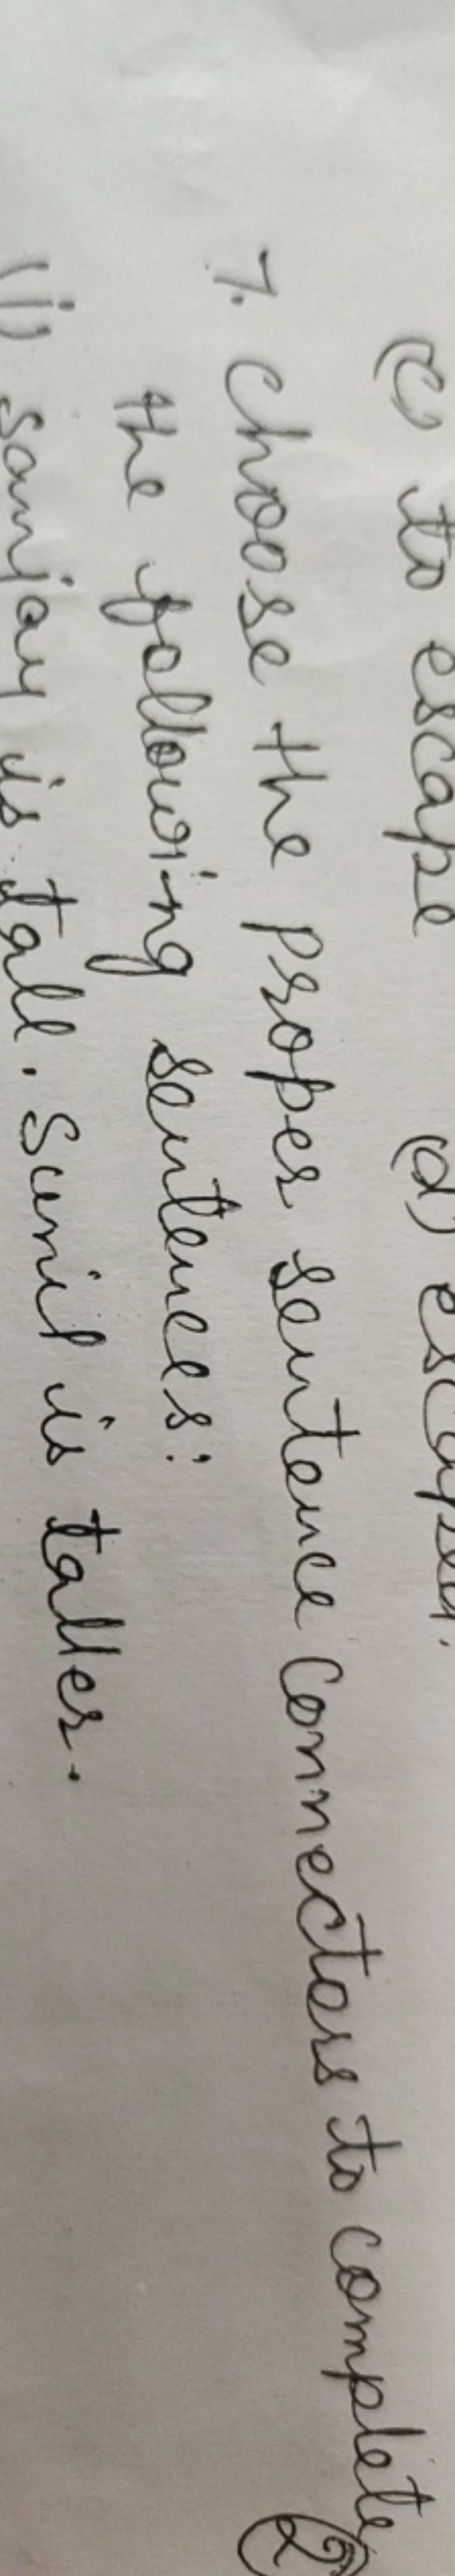 (c) to escape (d) escapes.
7. Choose the proper sentence connectors to complete
the following sentences: (2)
(i) Sanjay is tall. Sunil is taller.